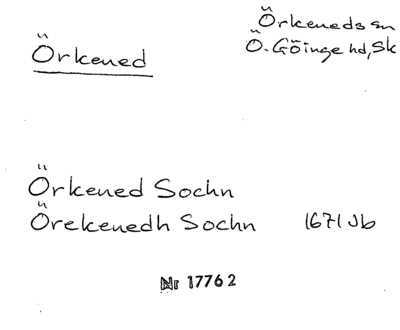 Örkened
Örkeneds sn
Ö. Göinge hd, Sk
Örkened Sochn
Örekenedh Sochn 1671 Jb
Nr 17762